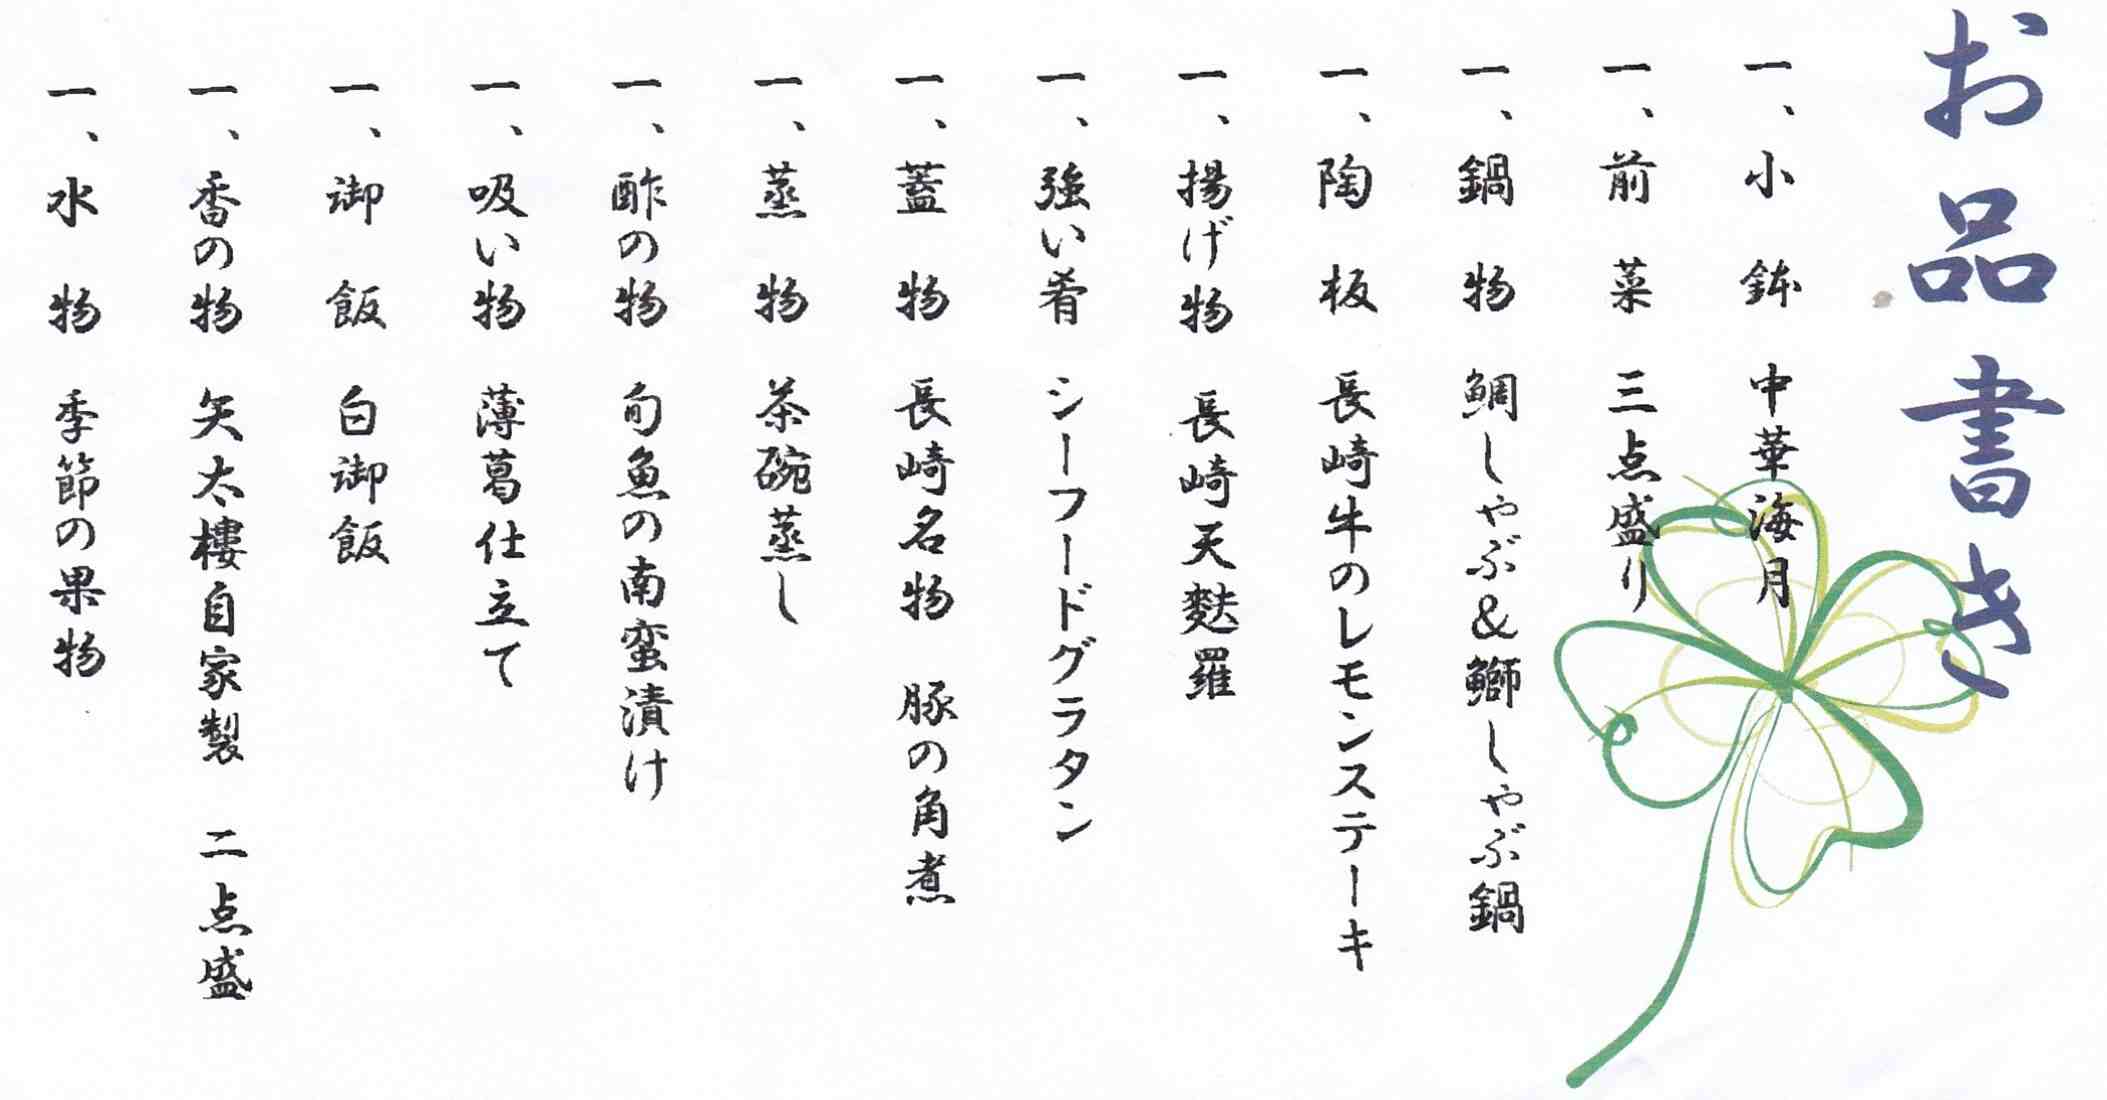 お品書き
一、小鉢 中華海月
一、前菜 三点盛り
一、鍋物 鯛しゃぶ&鰤しゃぶ鍋
一、陶板 長崎牛のレモンステーキ
一、揚げ物 長崎天麩羅
一、強い肴 シーフードグラタン
一、蓋物 長崎名物 豚の角煮
一、蒸物 茶碗蒸し
一、酢の物 旬魚の南蛮漬け
一、吸い物 薄葛仕立て
一、御飯 白御飯
一、香の物 矢太樓自家製 二点盛
一、水物 季節の果物